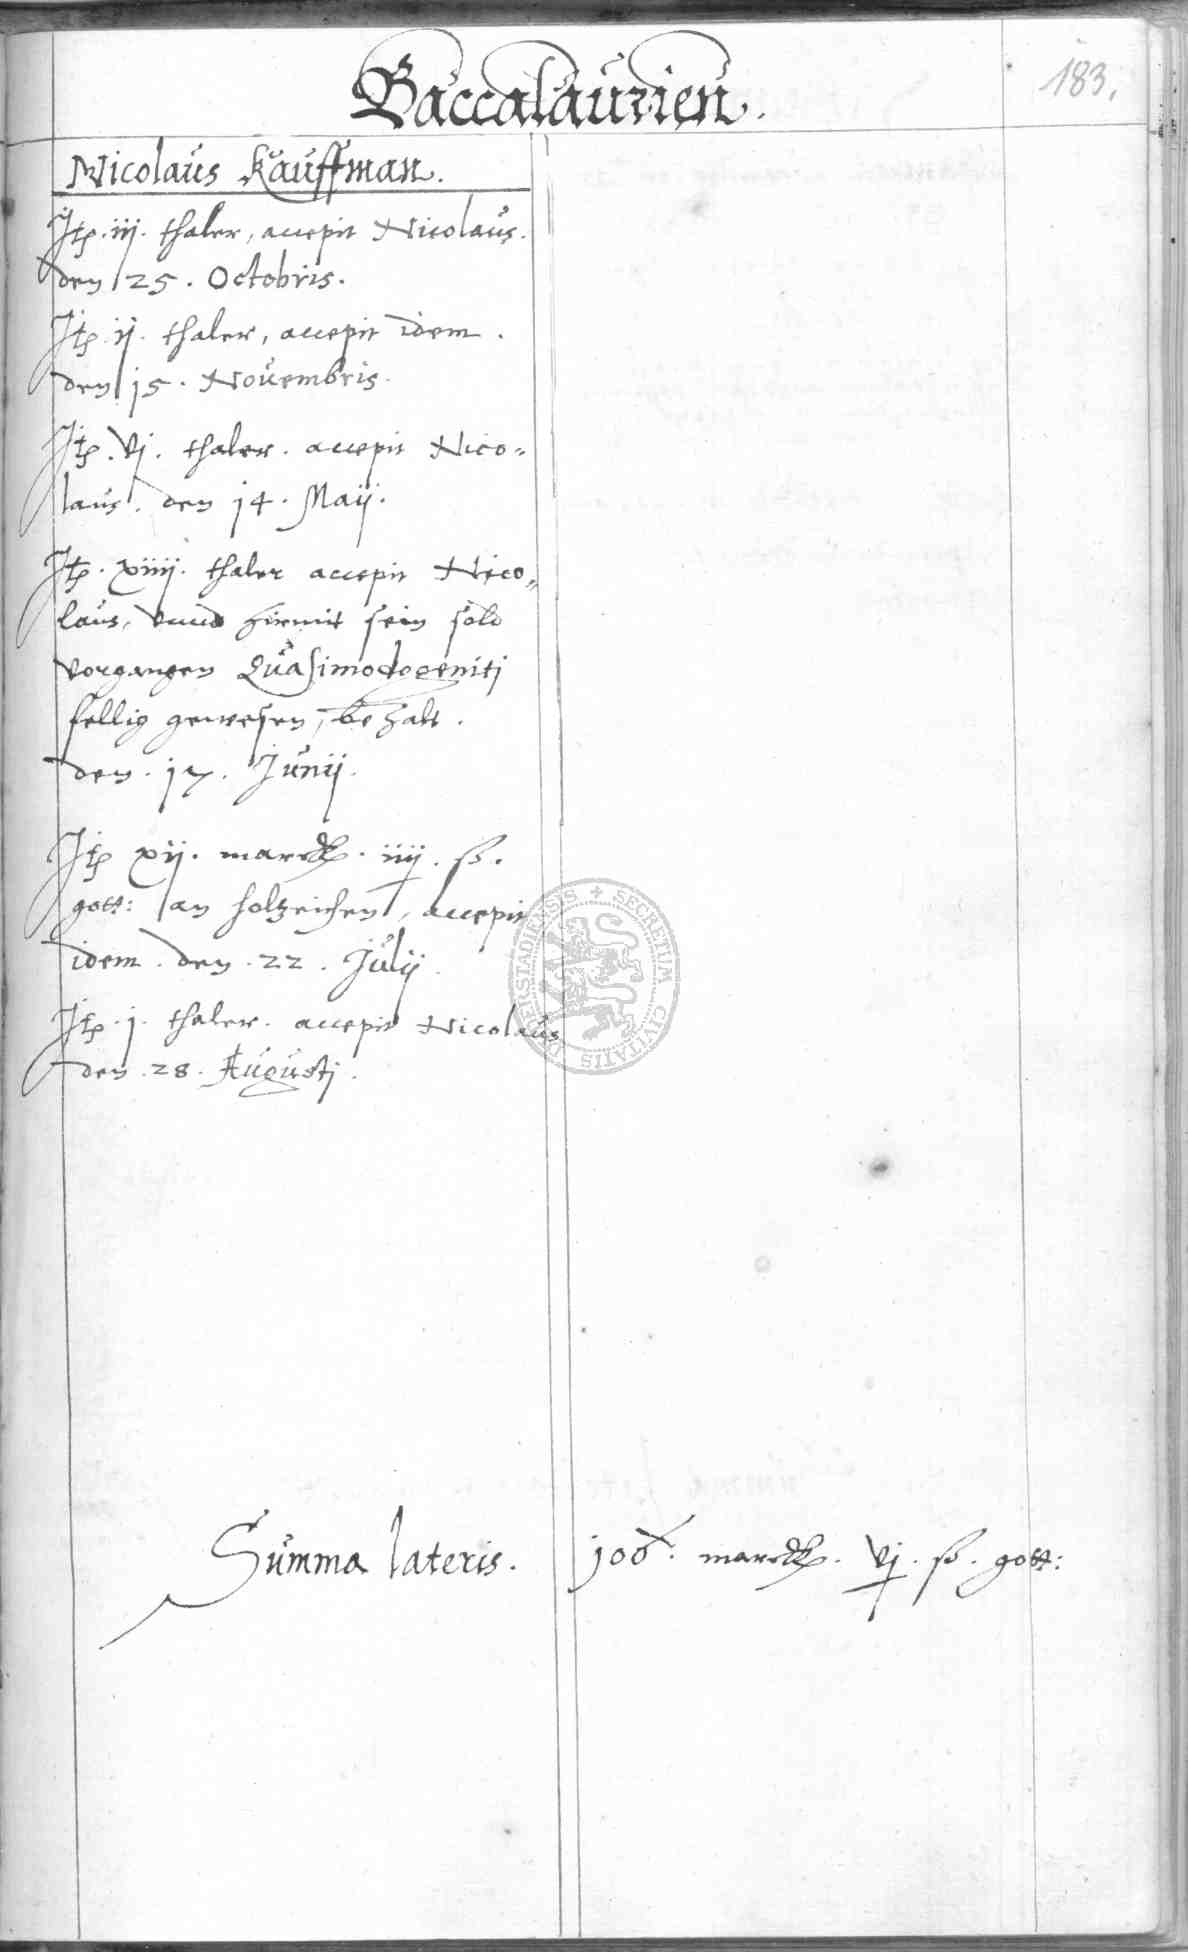 183.
Baccalaurien.
Nicolaus Kauffman.
Itp. iij. thaler, accepit Nicolaus.
den 25. Octobris.
Itp. ij. thaler, accepit idem.
den 15. Novembris.
Itp. vj. thaler. accepit Nico-
laus. den 14. Maij.
Itp. xiiij. thaler accepit Nico-
laus, vnnd hiemit sein sold
vorgangen Quasimodogeniti
fellig gewesen, bezalt.
den. 17. Junij.
Itp xij. marck. iiij. ß.
gott: an holtzeichen, accepit
idem. den. 22. Julij.
Itp. j. thaler. accepit Nicolaus
den. 28. Augustj.
SECRETUM CIVITATIS
Summa lateris. 106. marck. vj. ß. gott: